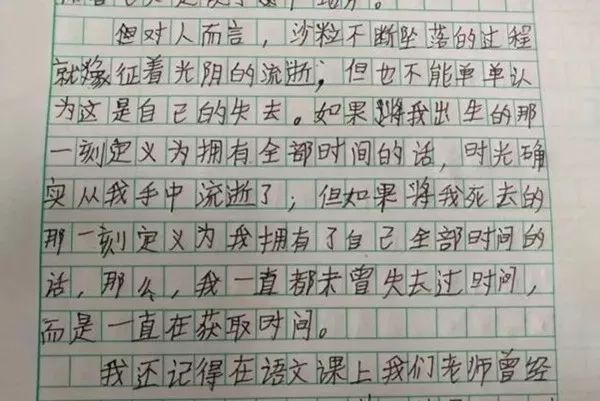 但对人而言，沙粒不断坠落的过程
就像征着光阴的流逝，但也不能单单认
为这是自己的失去。如果将我出生的那
一刻定义为拥有全部时间的话，时光确
实从我手中流逝了；但如果将我死去的
那一刻定义为我拥有了自己全部时间的
话，那么，我一直都未曾失去过时间，
而是一直在获取时间。
我还记得在语文课上我们老师曾经